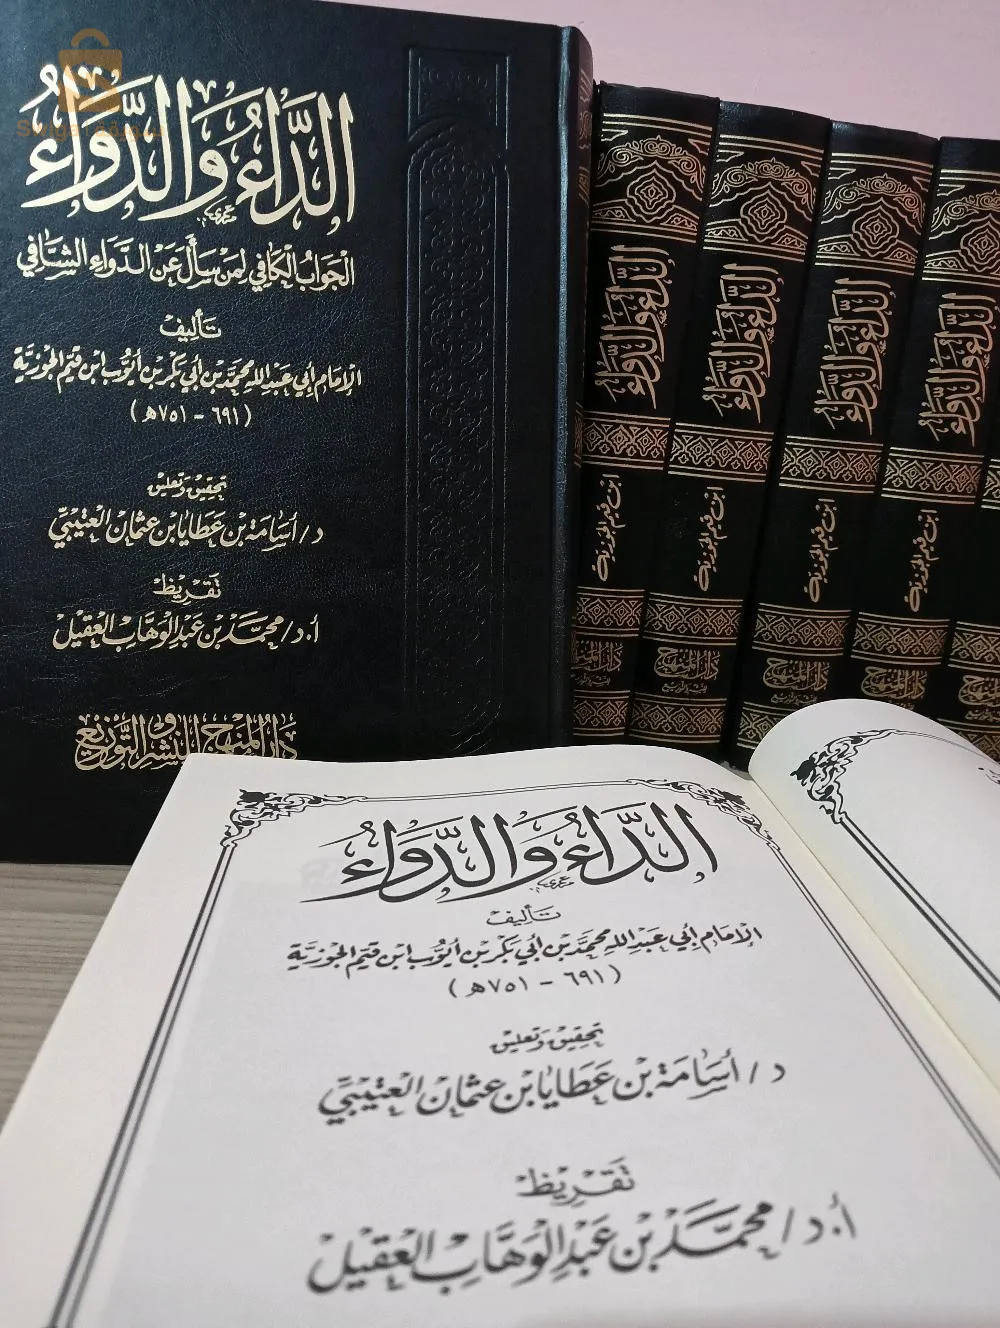 الدَّاءُ وَالدَّوَاءُ
الجَوابُ الكَافِي لِمَنْ سَأَلَ عَنِ الدَّوَاءِ الشَّافِي
تَأليف
الإمَام أبِي عَبدِ اللهِ محمَّد بْن أبي بَكْر بْن أيّوُب ابْن قَيِّم الجَوزيَّة
(٦٩١ - ٧٥١هـ)
تحقيق وتعليق
د/ أسَامَة بْن عَطَايَا بْن عثمَان العتيبيّ
تَقـريـظ
أ.د/ محمَّد بْن عَبدِ الوَهَّاب العَقيل
دَارُ المنهَج للنَّشْر والتَّوزيع
الدَّاءُ وَالدَّوَاءُ
ابن قيم الجوزية
دَارُ المنهَج
الدَّاءُ وَالدَّوَاءُ
ابن قيم الجوزية
دَارُ المنهَج
الدَّاءُ وَالدَّوَاءُ
ابن قيم الجوزية
دَارُ المنهَج
الدَّاءُ وَالدَّوَاءُ
ابن قيم الجوزية
دَارُ المنهَج
الدَّاءُ وَالدَّوَاءُ
تَأليف
الإمَام أبِي عَبدِ اللهِ محمَّد بْن أبي بَكْر بْن أيّوُب ابْن قَيِّم الجَوزيَّة
(٦٩١ - ٧٥١هـ)
تحقيق وتعليق
د/ أسَامَة بْن عَطَايَا بْن عثمَان العتيبيّ
تَقـريـظ
أ.د/ محمَّد بْن عَبدِ الوَهَّاب العَقيل